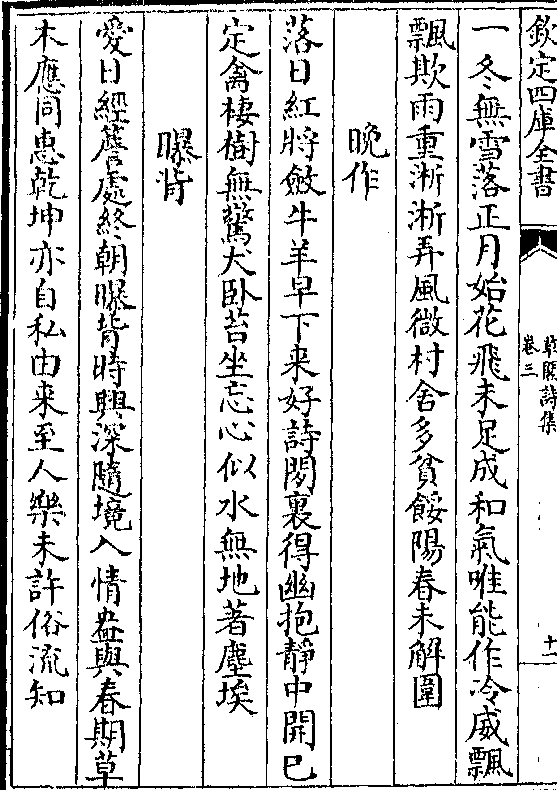 欽定四庫全書
卷三
一冬無雪落正月始花飛未足成和氣唯能作冷威飄
飄欺雨重淅淅弄風微村舍多貧餒陽春未解圍
晚作
落日紅將斂牛羊早下来好詩閑裏得幽抱靜中開已
定禽棲樹無驚犬卧苔坐忘心似水無地著塵埃
曝背
愛日經簷處終朝曝背時興深隨境入情盎與春期草
木應同恵乾坤亦自私由来至人樂未許俗流知
詩集
十一